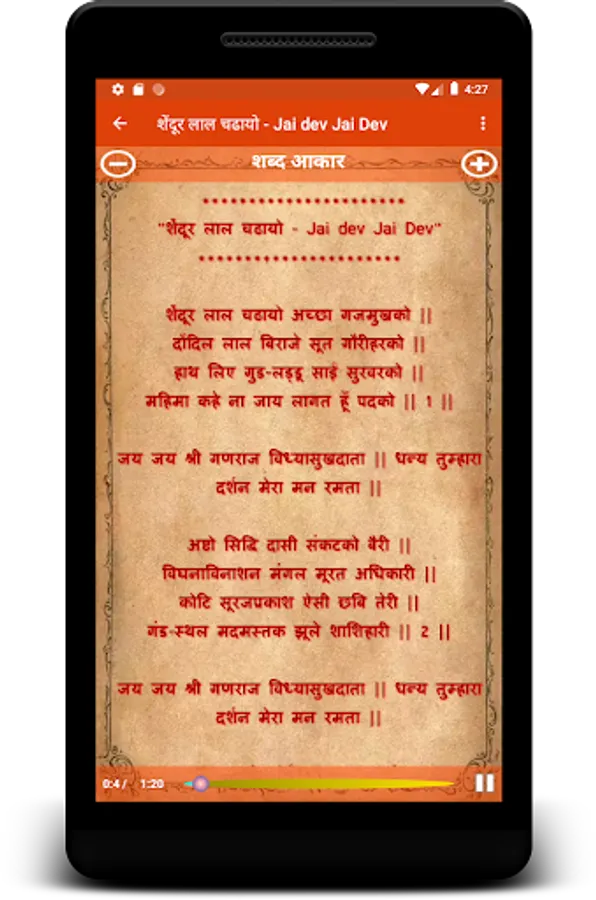 4:27
शेंदूर लाल चढायो - Jai dev Jai Dev
शब्द आकार
**********************
"शेंदूर लाल चढायो - Jai dev Jai Dev"
**********************
शेंदूर लाल चढायो अच्छा गजमुखको ||
दोंदिल लाल बिराजे सूत गौरीहरको ||
हाथ लिए गुड-लड्डू साई सुरवरको ||
महिमा कहे ना जाय लागत हूँ पदको || 1 ||
जय जय श्री गणराज विध्यासुखदाता || धन्य तुम्हारा
दर्शन मेरा मन रमता ||
अष्टो सिद्धि दासी संकटको बैरी ||
विघनाविनाशन मंगल मूरत अधिकारी ||
कोटि सूरजप्रकाश ऐसी छबि तेरी ||
गंड-स्थल मदमस्तक झूले शाशिहारी || 2 ||
जय जय श्री गणराज विध्यासुखदाता || धन्य तुम्हारा
दर्शन मेरा मन रमता ||
0:4 / 1:20